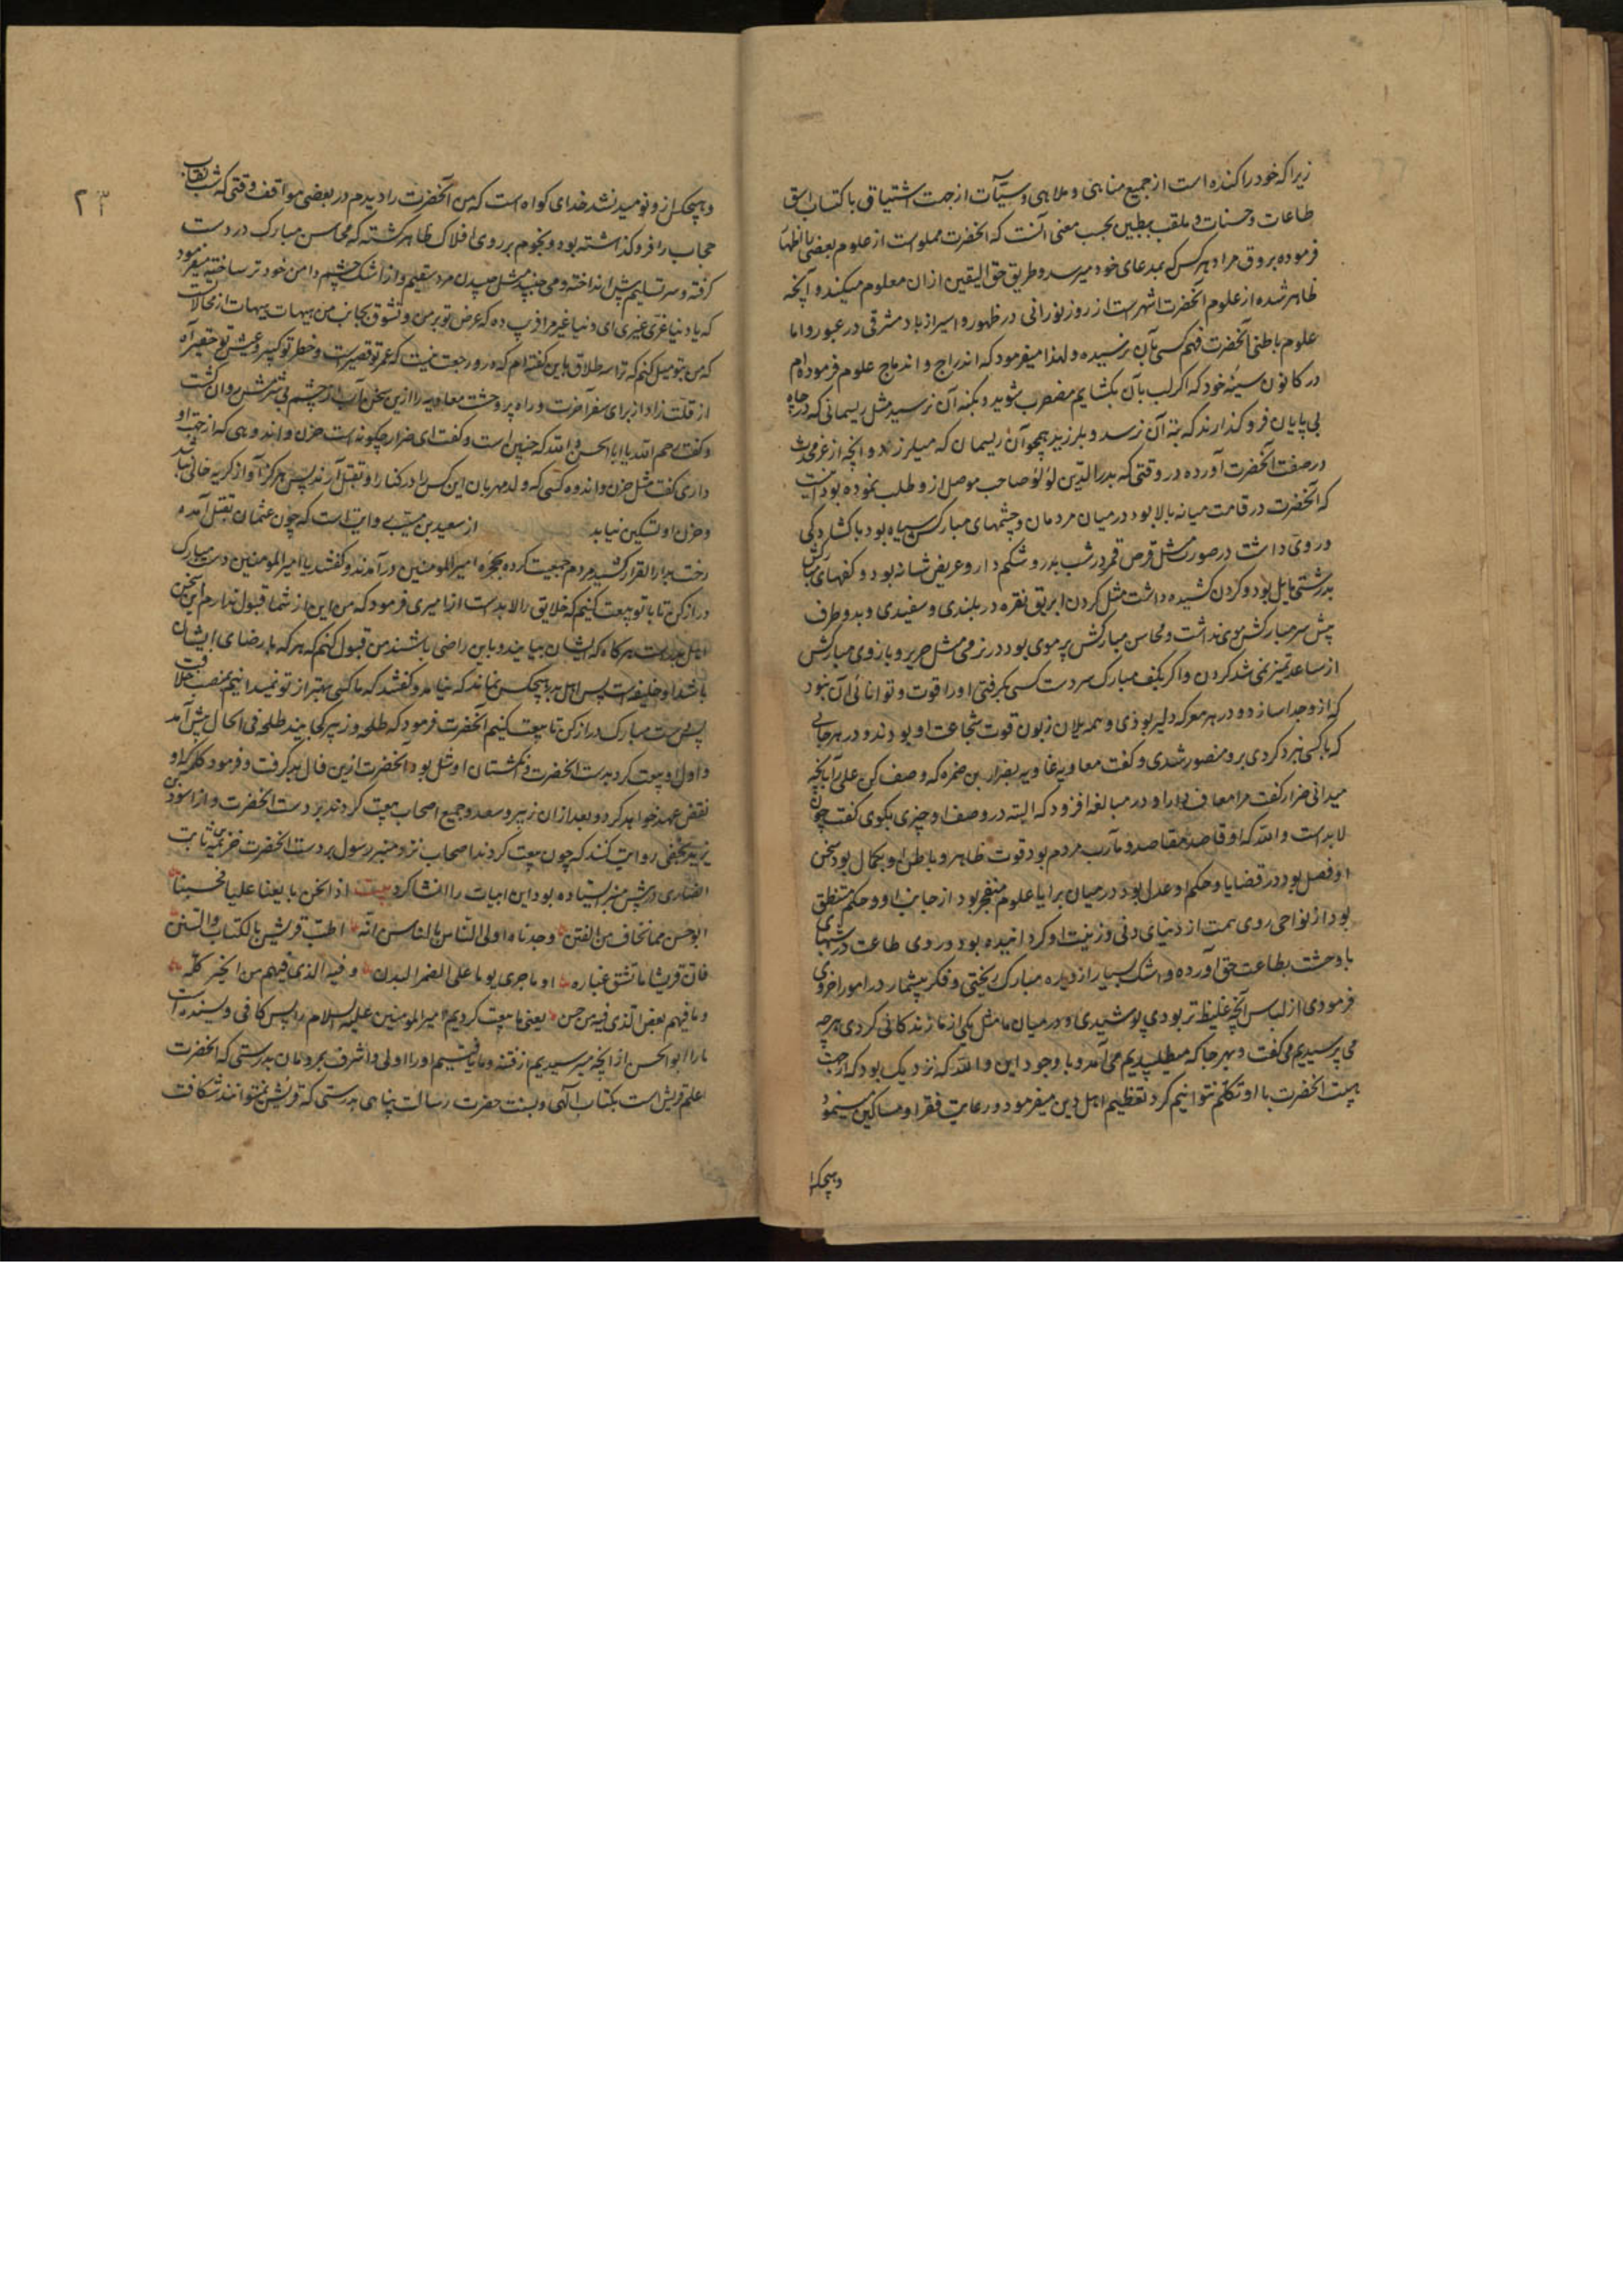 زیرا که خود را کننده است از جمیع مناهی و ملاهی و سیّآت از جهت اشتیاق باکتساب
طاعات و حسنات و ملقب ببطین بحسب معنی آنست که انحضرت مملو است از علوم بعضی باظهار
فرموده بر وفق مراد هر کس که بمدعای خود میرسد و طریق حق الیقین از ان معلوم میکند و آنچه
ظاهر شده از علوم آنحضرت اشهرست از روز نورانی در ظهور و اسیر از باد مشرقی در عبور و اما
علوم باطنی آنحضرت فهم کسی بآن نرسیده و لهذا میفرمود که اندراج و اندماج علوم فرموده‌ام
در کانون سینهٔ خود که اکر لب بآن بکشایم مضطرب شوید و بکنه آن نرسید مثل ریسمانی که در چاه
بی پایان فرو کذارند که بته آن نرسد و بلرزید همچو آن ریسمان که میلرزد و آنچه از عز محدث
در صفت آنحضرت آورده در وقتی که بدر الدین لؤلؤ صاحب موصل از و طلب نموده بود اینست
که آنحضرت در قامت میانه بالا بود در میان مردمان و چشمهای مبارکش سیاه بود با کشادکی
و روی داشت در صورت مثل قرص قمر در شب بدر و شکم دار و عریض شانه بود و کفهای مبارکش
بدرشتی مایل بود و کردن کشیده داشت مثل کردن ابریق نقره در بلندی و سفیدی و بدو طرف
پیش سر مبارکش موی نداشت و محاسن مبارکش پر موی بود در نرمی مثل حریر و بازوی مبارکش
از ساعد تمیز نمی شد کردن و اکر بکف مبارک سر دست کسی بکرفتی او را قوت و توانائی آن نبود
که از و جدا سازد و در هر معرکه دلیر بودی و همه یلان زبون قوت شجاعت او بودند و در هر جائی
که با کسی نبرد کردی برو منصور شدی و کفت معاویه غاویه بضرار بن ضمره که وصف کن علی را بآنچه
میدانی ضرار کفت مرا معاف دار او در مبالغه افزود که البته در وصف او چیزی بکوی کفت چون
لا بد است و الله که او قاصد مقاصد و مآرب مردم بود قوت ظاهر و باطن او بکمال بود سخن
او فصل بود در قضایا و حکم او عدل بود در میان برایا علوم منفجر بود از جانب او و حکم منطق
بود از نواحی روی همت از دنیای دنی و زینت او کردانیده بود و روی طاعت در شبهای
با وحشت بطاعت حق آورده و اشک بسیار از دیده مبارک ریختی و فکر بیشمار در امور اخروی
فرمودی از لباس آنچه غلیظ تر بودی پوشیدی و در میان ما مثل یکی از ما زندکانی کردی هر چه
می پرسیدیم می کفت و بهر جا که میطلبیدیم می آمد و با وجود این و الله که نزدیک بود که از جهت
هیبت انحضرت با او تکلم نتوانیم کرد تعظیم اهل دین میفرمود و رعایت فقرا و مساکین مینمود
و هیچکس
۲۳
و هیچکس از و نومید نشد خدای کواه است که من آنحضرت را دیدم در بعضی مواقف وقتی که شب نقاب
حجاب را فرو کذاشته بود و نجوم بر روی افلاک ظاهر کشته که محاسن مبارک در دست
کرفته و سر تسلیم پیش انداخته و می طپید مثل طپیدن مرد سقیم و از اشک چشم دامن خود تر ساخته میفرمود
که یا دنیا غری غیری ای دنیا غیر مرا فریب ده که عرض تو بر من و تشوق بجانب من هیهات هیهات از محالات
که من بتو میل کنم که ترا سه طلاق باین کفته‌ام که در و رجعت نیست که عمر تو قصیر است و خطر تو کبیر و عیش تو حقیر آه
از قلت زاد از برای سفر آخرت و راه پر وحشت معاویه را ازین سخن آب از چشم بی شرمش روان کشت
و کفت رحم الله یا ابا الحسن و الله که چنین است و کفت ای ضرار چکونه است حزن و اندوهی که از جهت او
داری کفت مثل حزن و اندوه کسی که ولد مهربان این کس را در کنار او بقتل آرند پس هرکز او از کریه خالی نباشد
و حزن او تسکین نیابد از سعید بن مسیب روایت است که چون عثمان بقتل آمده
رخت بدار القرار کشید مردم جمعیت کرده بحجره امیر المومنین در آمدند و کفتند یا امیر المومنین دست مبارک
دراز کن تا با تو بیعت کنیم که خلایق را لا بد است از امیری فرمود که من این از شما قبول ندارم این سخن
اهل بدر است هر کاه که ایشان بیایند و باین راضی باشند من قبول کنم که هر که با رضای ایشان
باشد او خلیفه است پس اهل بدر هیچکس نماند که نیامد و کفتند که ما کسی بهتر از تو نمیدانیم بمنصب خلافت
پس دست مبارک دراز کن تا بیعت کنیم آنحضرت فرمود که طلحه و زبیر کجایند طلحه فی الحال پیش آمد
و اول او بیعت کرد بدست انحضرت و انکشتان او شل بود آنحضرت ازین فال بد کرفت و فرمود که او
نقض عهد خواهد کرد و بعد از ان زبیر و سعد و جمیع اصحاب بیعت کردند بر دست انحضرت و از اسود بن
یزید نخعی روایت کنند که چون بیعت کردند اصحاب نزد منبر رسول بر دست انحضرت خزیمة بن ثابت
انصاری در پیش منبر ایستاده بود این ابیات را انشا کرد بیت اذا نحن بایعنا علیا فحسبنا
ابو حسن مما نخاف من الفتن وجدناه اولی الناس بالناس انّه اطب قریش بالکتاب و السنن
فان قریشا ما تشق غباره اذا ما جری یوما علی الضمر البدن و فیه الذی فیهم من الخیر کلّه
و ما فیهم بعض الذی فیه من حسن یعنی ما بیعت کردیم امیر المومنین علیه السلام را پس کافی و بسنده است
ما را ابو الحسن از آنچه میترسیدیم از فتنه و ما یافتیم او را اولی و اشرف بمردمان بدرستی که انحضرت
اعلم قریش است بکتاب آلهی و بسنت حضرت رسالت پناهی بدرستی که قریش نمیتوانند شکافت